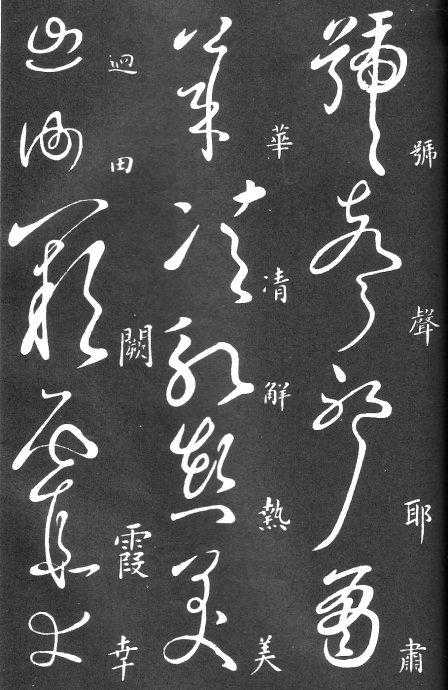 號聲耶肅
華清解熱美
迴田闕霞幸